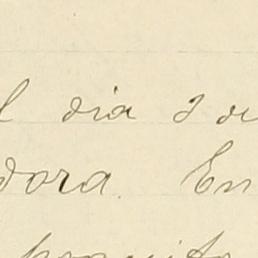 l dia 2 de
dora. En